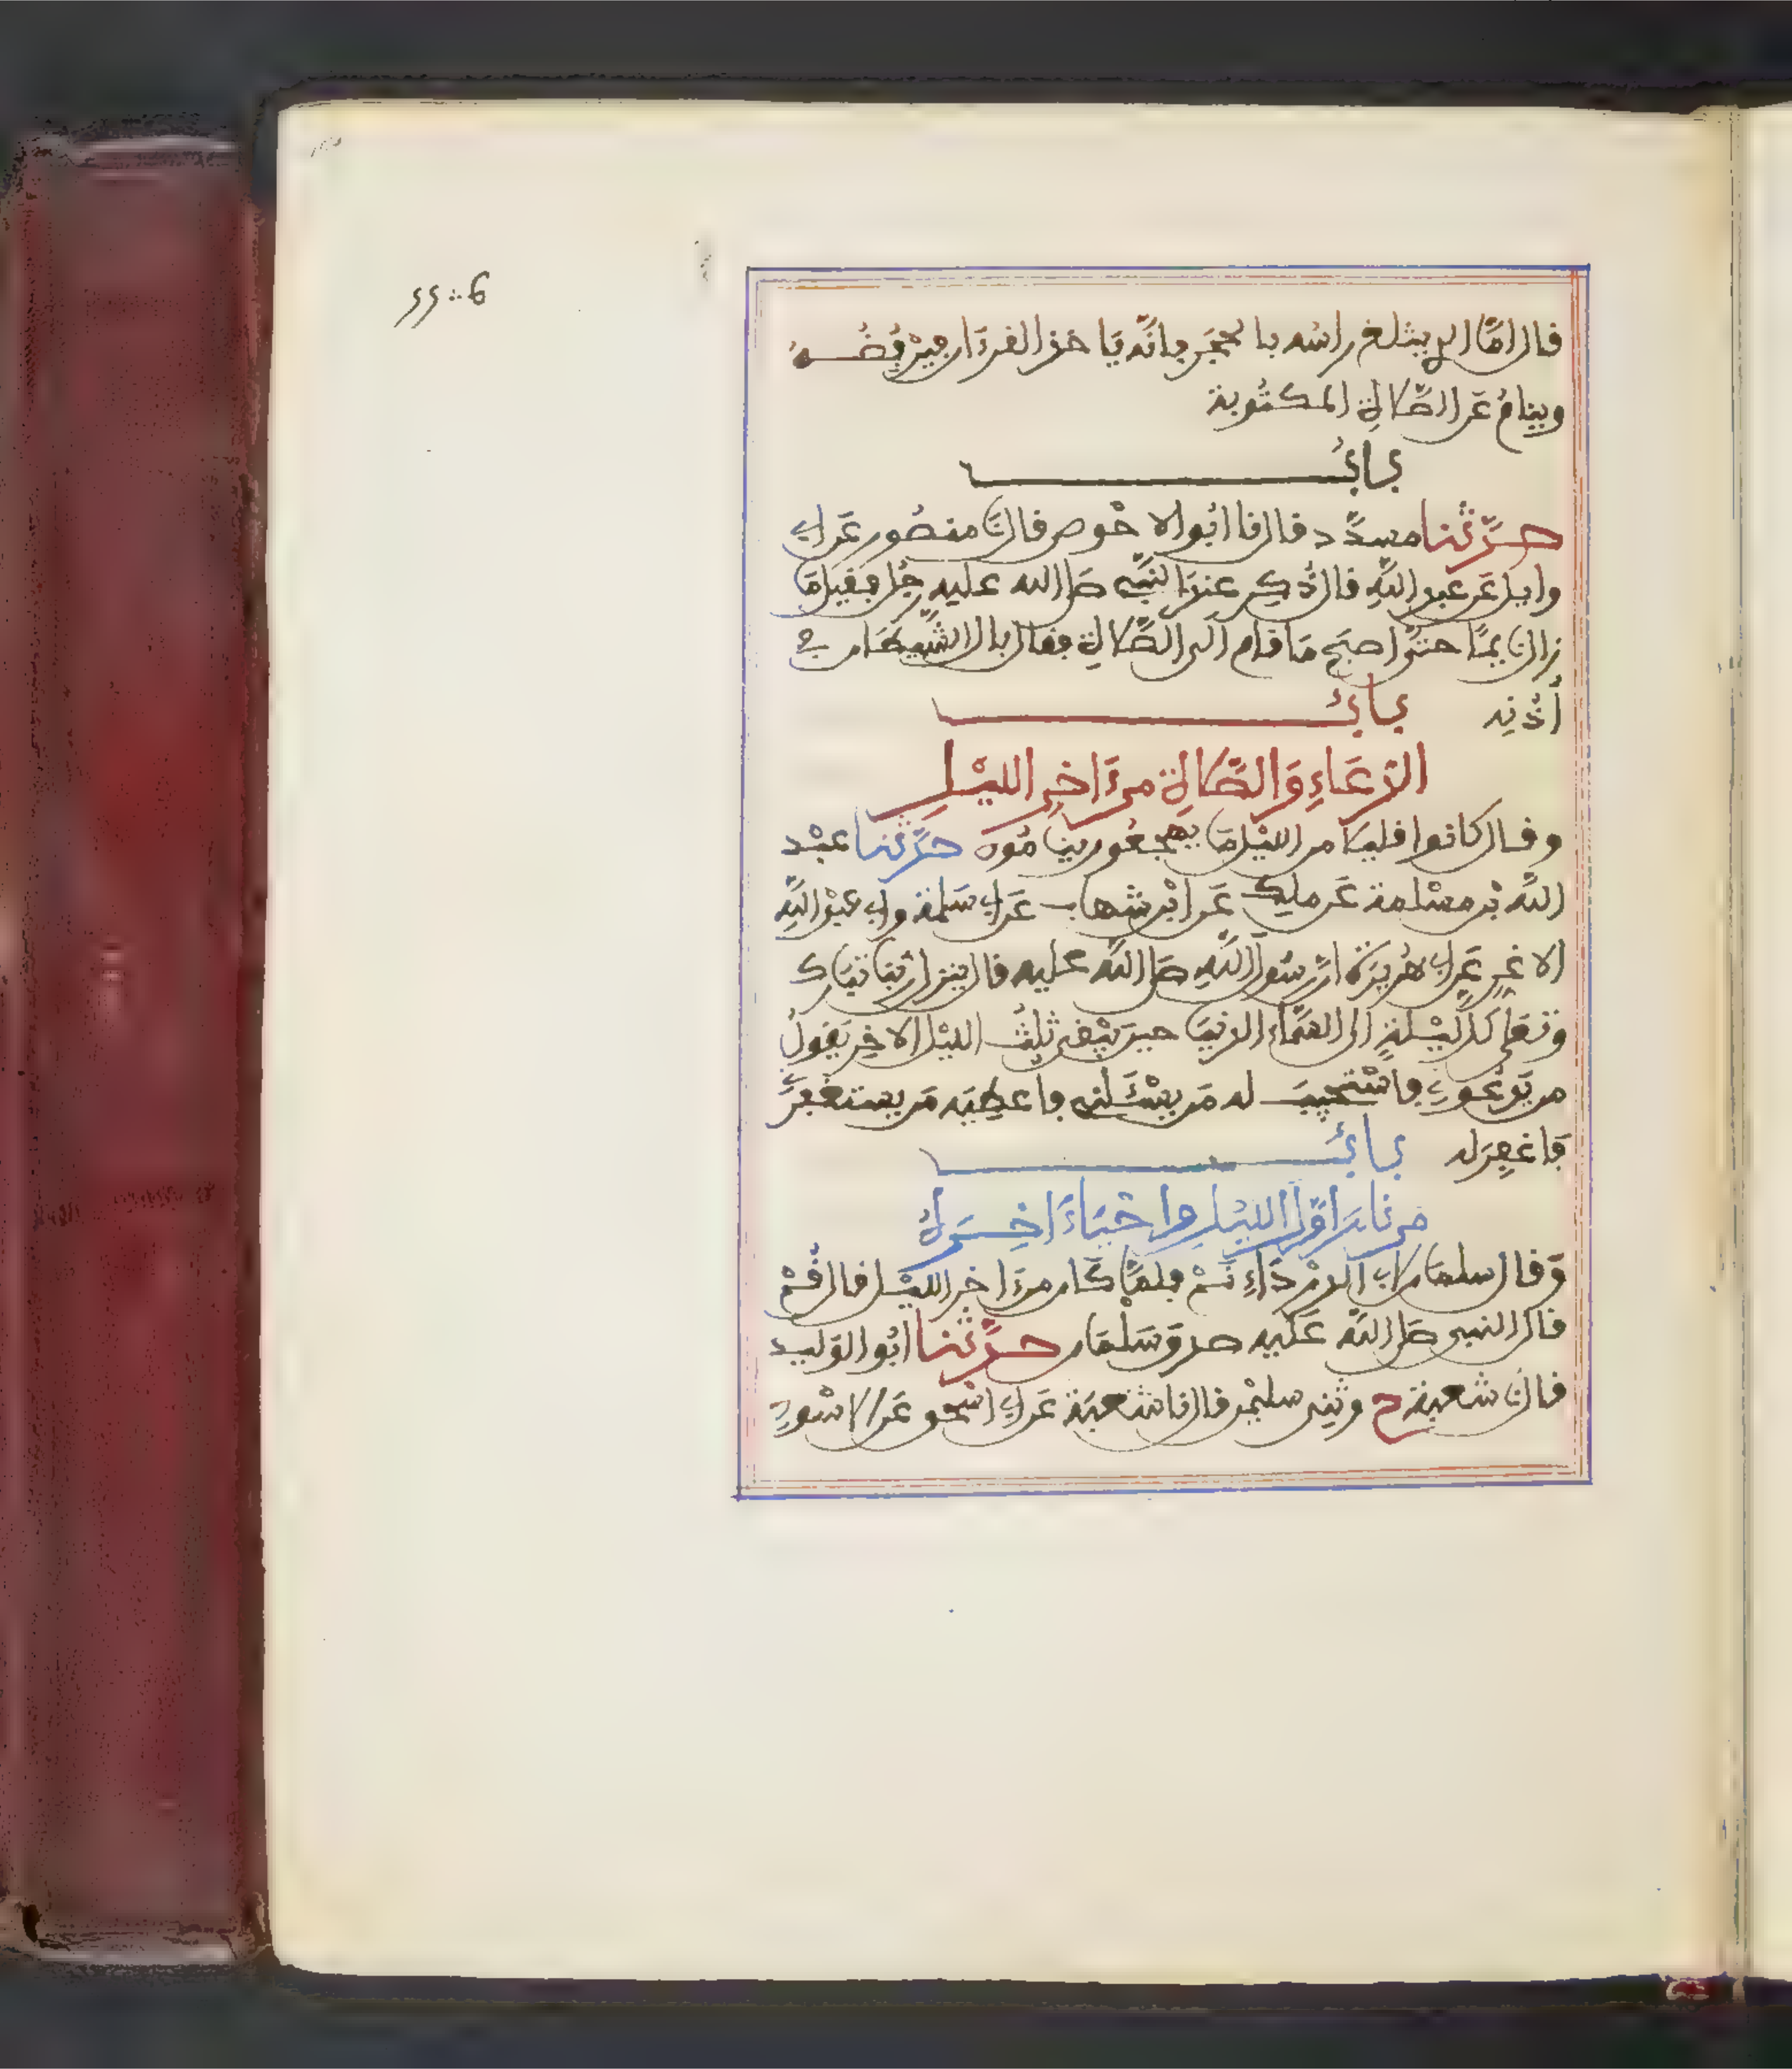 قال اما الذي يثلغ راسه بالحجر فانه ياخذ القرءان فيرفضه
وينام عن الصلاة المكتوبة
باب
حدثنا مسدد قال نا ابو الاحوص قال نا منصور عن ابي
وايل عن عبد الله قال ذكر عند النبي صلى الله عليه رجل فقيل ما
زال نايما حتى اصبح ما قام الى الصلاة فقال بال الشيطان في
أذنه باب
الدعاء والصلاة من ءاخر الليل
وقال كانوا قليلا من الليل ما يهجعون ينامون حدثنا عبد
الله بن مسلمة عن ملك عن ابن شهاب عن ابي سلمة وابي عبد الله
الاغر عن ابي هريرة ان رسول الله صلى الله عليه قال ينزل ربنا تبارك
وتعلى كل ليلة الى السماء الدنيا حين يبقى ثلث الليل الاخر يقول
من يدعوني فاستجيب له من يسئلني فاعطيه من يستغفرني
فاغفر له باب
من نام اول الليل واحياء اخره
وقال سلمان لابي الدرداء نم فلما كان من ءاخر الليل قال قم
قال النبي صلى الله عليه صدق سلمان حدثنا ابو الوليد
قال نا شعبة ح وثني سليمن قال نا شعبة عن ابي اسحق عن الاسود